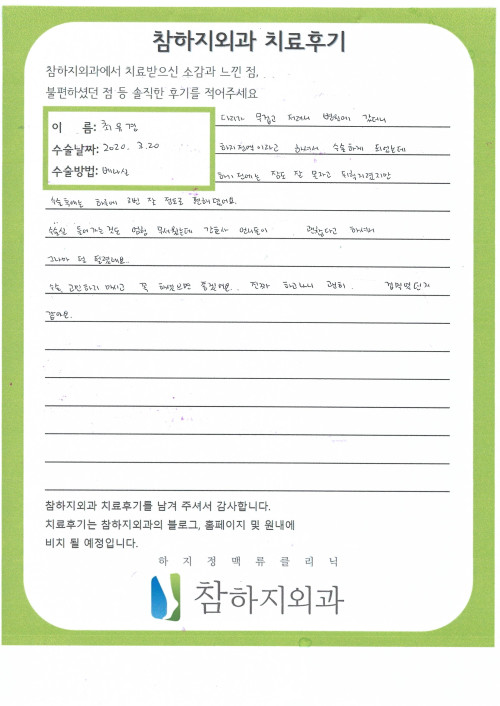 참하지외과 치료후기
참하지외과에서 치료받으신 소감과 느낀 점,
불편하셨던 점 등 솔직한 후기를 적어주세요
이 름: 최유경
수술날짜: 2020. 3.20
수술방법: 베나실
다리가 무겁고 저려서 병원에 갔더니
하지정맥이라고 하셔서 수술하게 되었는데
하기 전에는 잠도 잘 못자고 뒤척거렸지만
수술후에는 하루에 잘 정도로 편해졌어요.
수술실 들어가는것도 엄청 무서웠는데 간호사 언니들이 괜찮다고 하셔서
그나마 덜 떨렸네요..
수술 고민하지 마시고 꼭 하셨으면 좋겠어요. 진짜 하고나니 괜히. 겁먹었던거
같아요.
참하지외과 치료후기를 남겨 주셔서 감사합니다.
치료후기는 참하지외과의 블로그, 홈페이지 및 원내에
비치 될 예정입니다.
하지정맥류클리닉
참하지외과